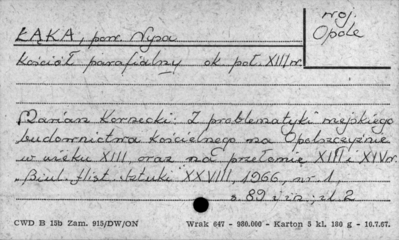 woj.
Opole
ŁĄKA, pow. Nysa
Kościół parafialny ok. poł. XIII w.
Marian Kornecki: Z problematyki miejskiego
budownictwa kościelnego na Opolszczyźnie
w wieku XIII, oraz na przełomie XIII i XIV w.
"Biul. Hist. Sztuki XXVIII, 1966, nr. 1,
s. 89 i in.; il. 2
CWD B 15b Zam. 915/DW/ON Wrak 647 - 980.000 - Karton 5 kl. 180 g - 10.7.67.